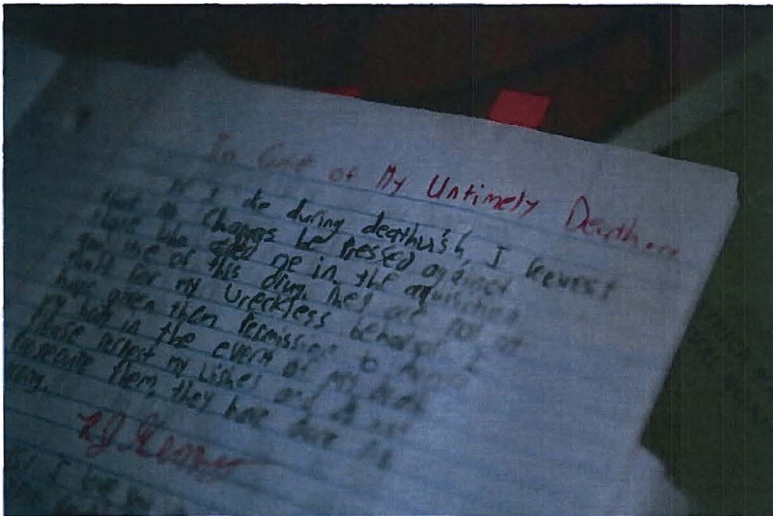 In Case of My Untimely Death...
If I die during deathwish, I request
that no charges be pressed against
those who aided me in the aquisition
and use of this drug. They are not at
fault for my wreckless behavior. I
have given them permission to
my body in the event of my death
Please respect my wishes and do not
them, they have done no
wrong.